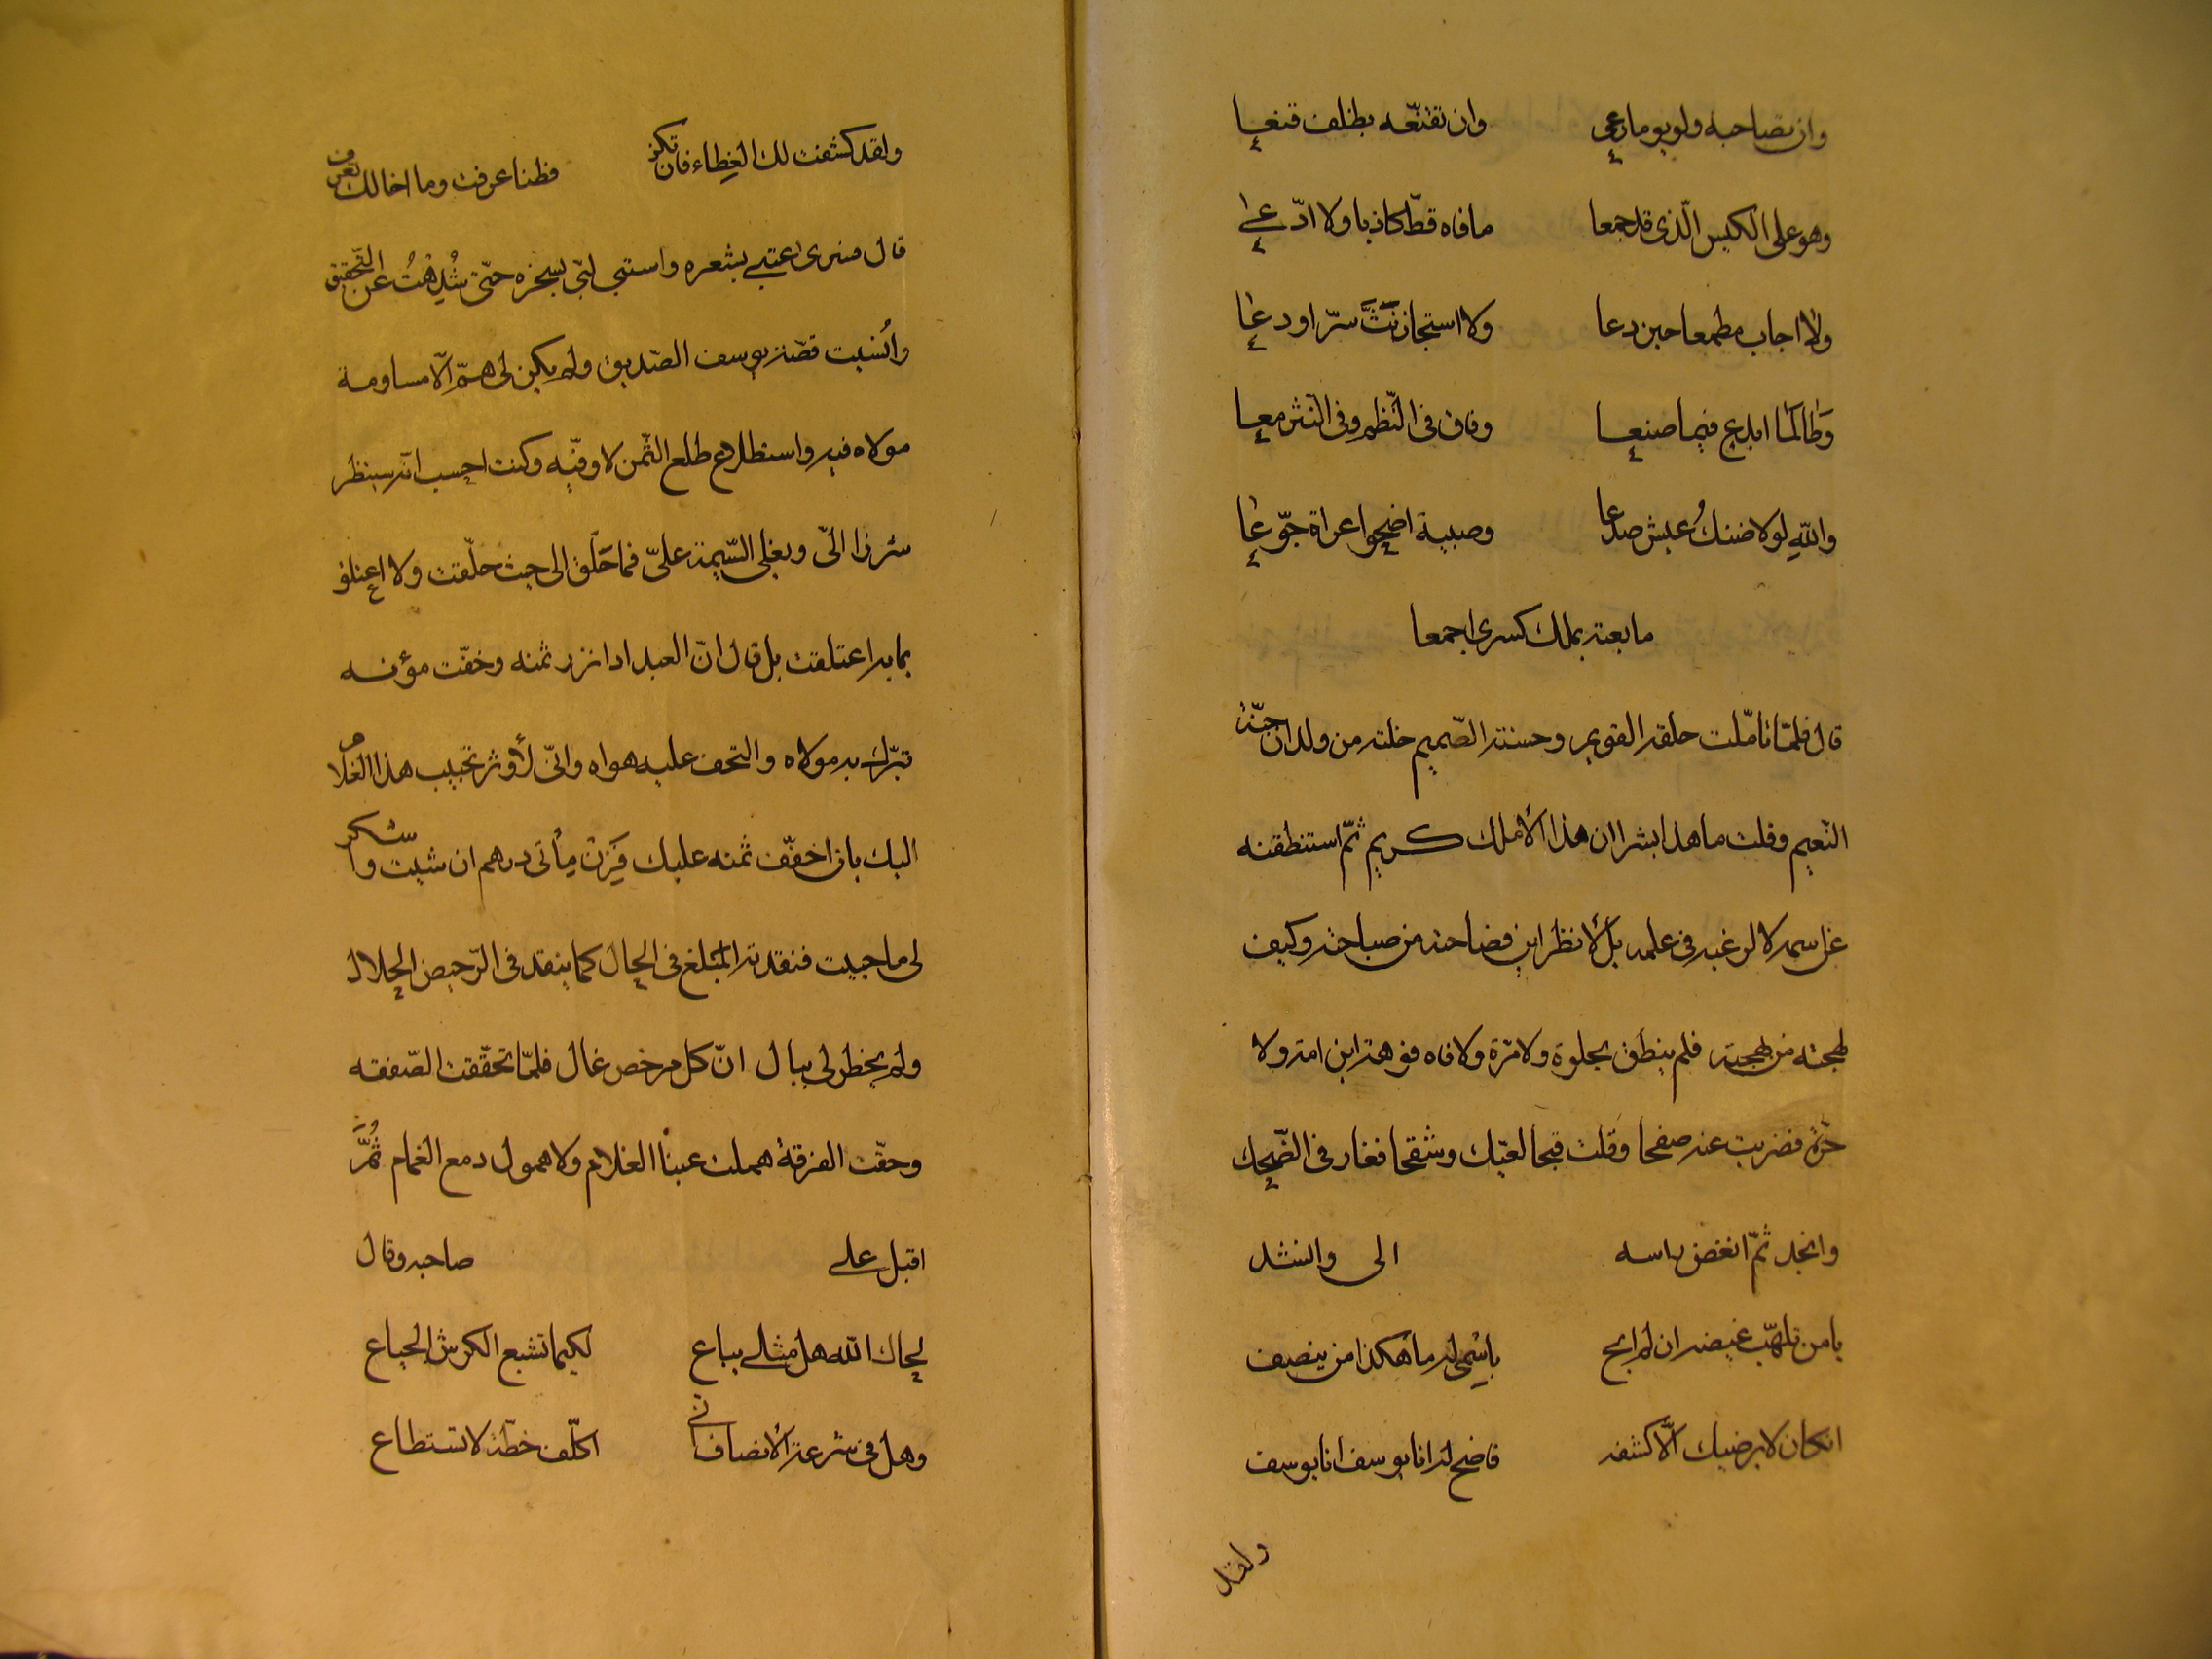 وان تصاحبه ولو يوما رعى وان تقنّعه بظلف قنعا
وهو على الكيس الّذى قد جمعا ما فاه قطّ كاذبا ولا ادّعى
ولا اجاب مطمعا حين دعا ولا استجاز نثّ سرّ اودعا
وطالما ابدع فيما صنعا وفاق فى النّظم وفى النّثر معا
والله لولا ضنك عيش صدعا وصبية اضحوا عراة جوّعا
ما بعته بملك كسرى اجمعا
قال فلمّا تامّلت خلقه القويم وحسنه الصّميم خلته من ولدان جنّة
النّعيم وقلت ما هذا بشرا ان هذا الا ملك كريم ثمّ استنطقته
عن اسمه لا لرغبة فى علمه بل لأنظر اين فصاحته من صباحته وكيف
لهجته من بهجته فلم ينطق بحلوة ولا مرّة ولا فاه فوهة ابن امة ولا
حرّة فضربت عنه صفحا وقلت قبحا لعيّك وشقحا فغار فى الضّحك
وانجد ثمّ انغض راسه الى وانشد
يا من تلهّب غيضه ان لم ابح باسمى له ما هكذا من ينصف
ان كان لا يرضيك الّا كشفه فاصخ له انا يوسف انا يوسف
ولقد
ولقد كشفت لك الغطاء فان تكن فطنا عرفت وما اخالك تعرف
قال فسرى عتبى بشعره واستبى لبّى بسحره حتّى شُدِهْتُ عن التّحقيق
وأُنسيت قصّة يوسف الصّديق ولم يكن لى همّ الّا مساومة
مولاه فيه واستطلاع طلع الثّمن لاوفّيه وكنت احسب انّه سينظر
شزرا الىّ ويغلى السّيمة علىّ فما حَلّق الى حيث حلّقت ولا اعتلق
بما به اعتلقت بل قال انّ العبد اذا نزر ثمنه وخفّت مؤنه
تبرّك به مولاه والتحف عليه هواه وانّى لأوثر تحبيب هذا الغلام
اليك بان اخفّف ثمنه عليك فَزِنْ مِأتى درهم ان شيت واشكر
لى ما حييت فنقدته المبلغ فى الحال كما ينقد فى الرّخيص الحلال
ولم يخطر لى ببال انّ كل مرخص غال فلمّا تحقّقت الصّفقه
وحقّت الفرقة هملت عينا الغلام ولا همول دمع الغمام ثُمَّ
اقبل على صاحبه وقال
لحاك الله هل مثلى يباع لكيما تشبع الكرش الجياع
وهل فى شرعة الأنصاف انّى اكلّف خطّة لا تستطاع